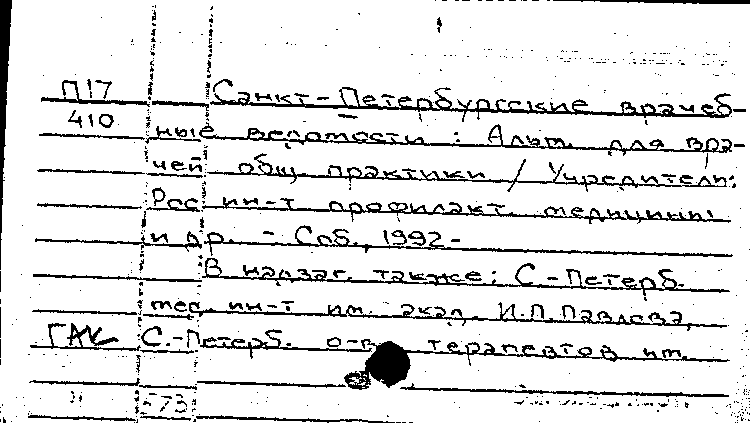 П17 Санкт-Петербургские врачеб-
410 ные ведомости : Альм. для вра-
чей общ. практики / Учредители:
Рос. ин-т профилакт. медицины
и др. - Спб., 1992-
В надзаг. также: С.-Петерб.
мед. ин-т им. акад. И.П.Павлова,
ГАК С.-Петерб. о-во терапевтов им.
573